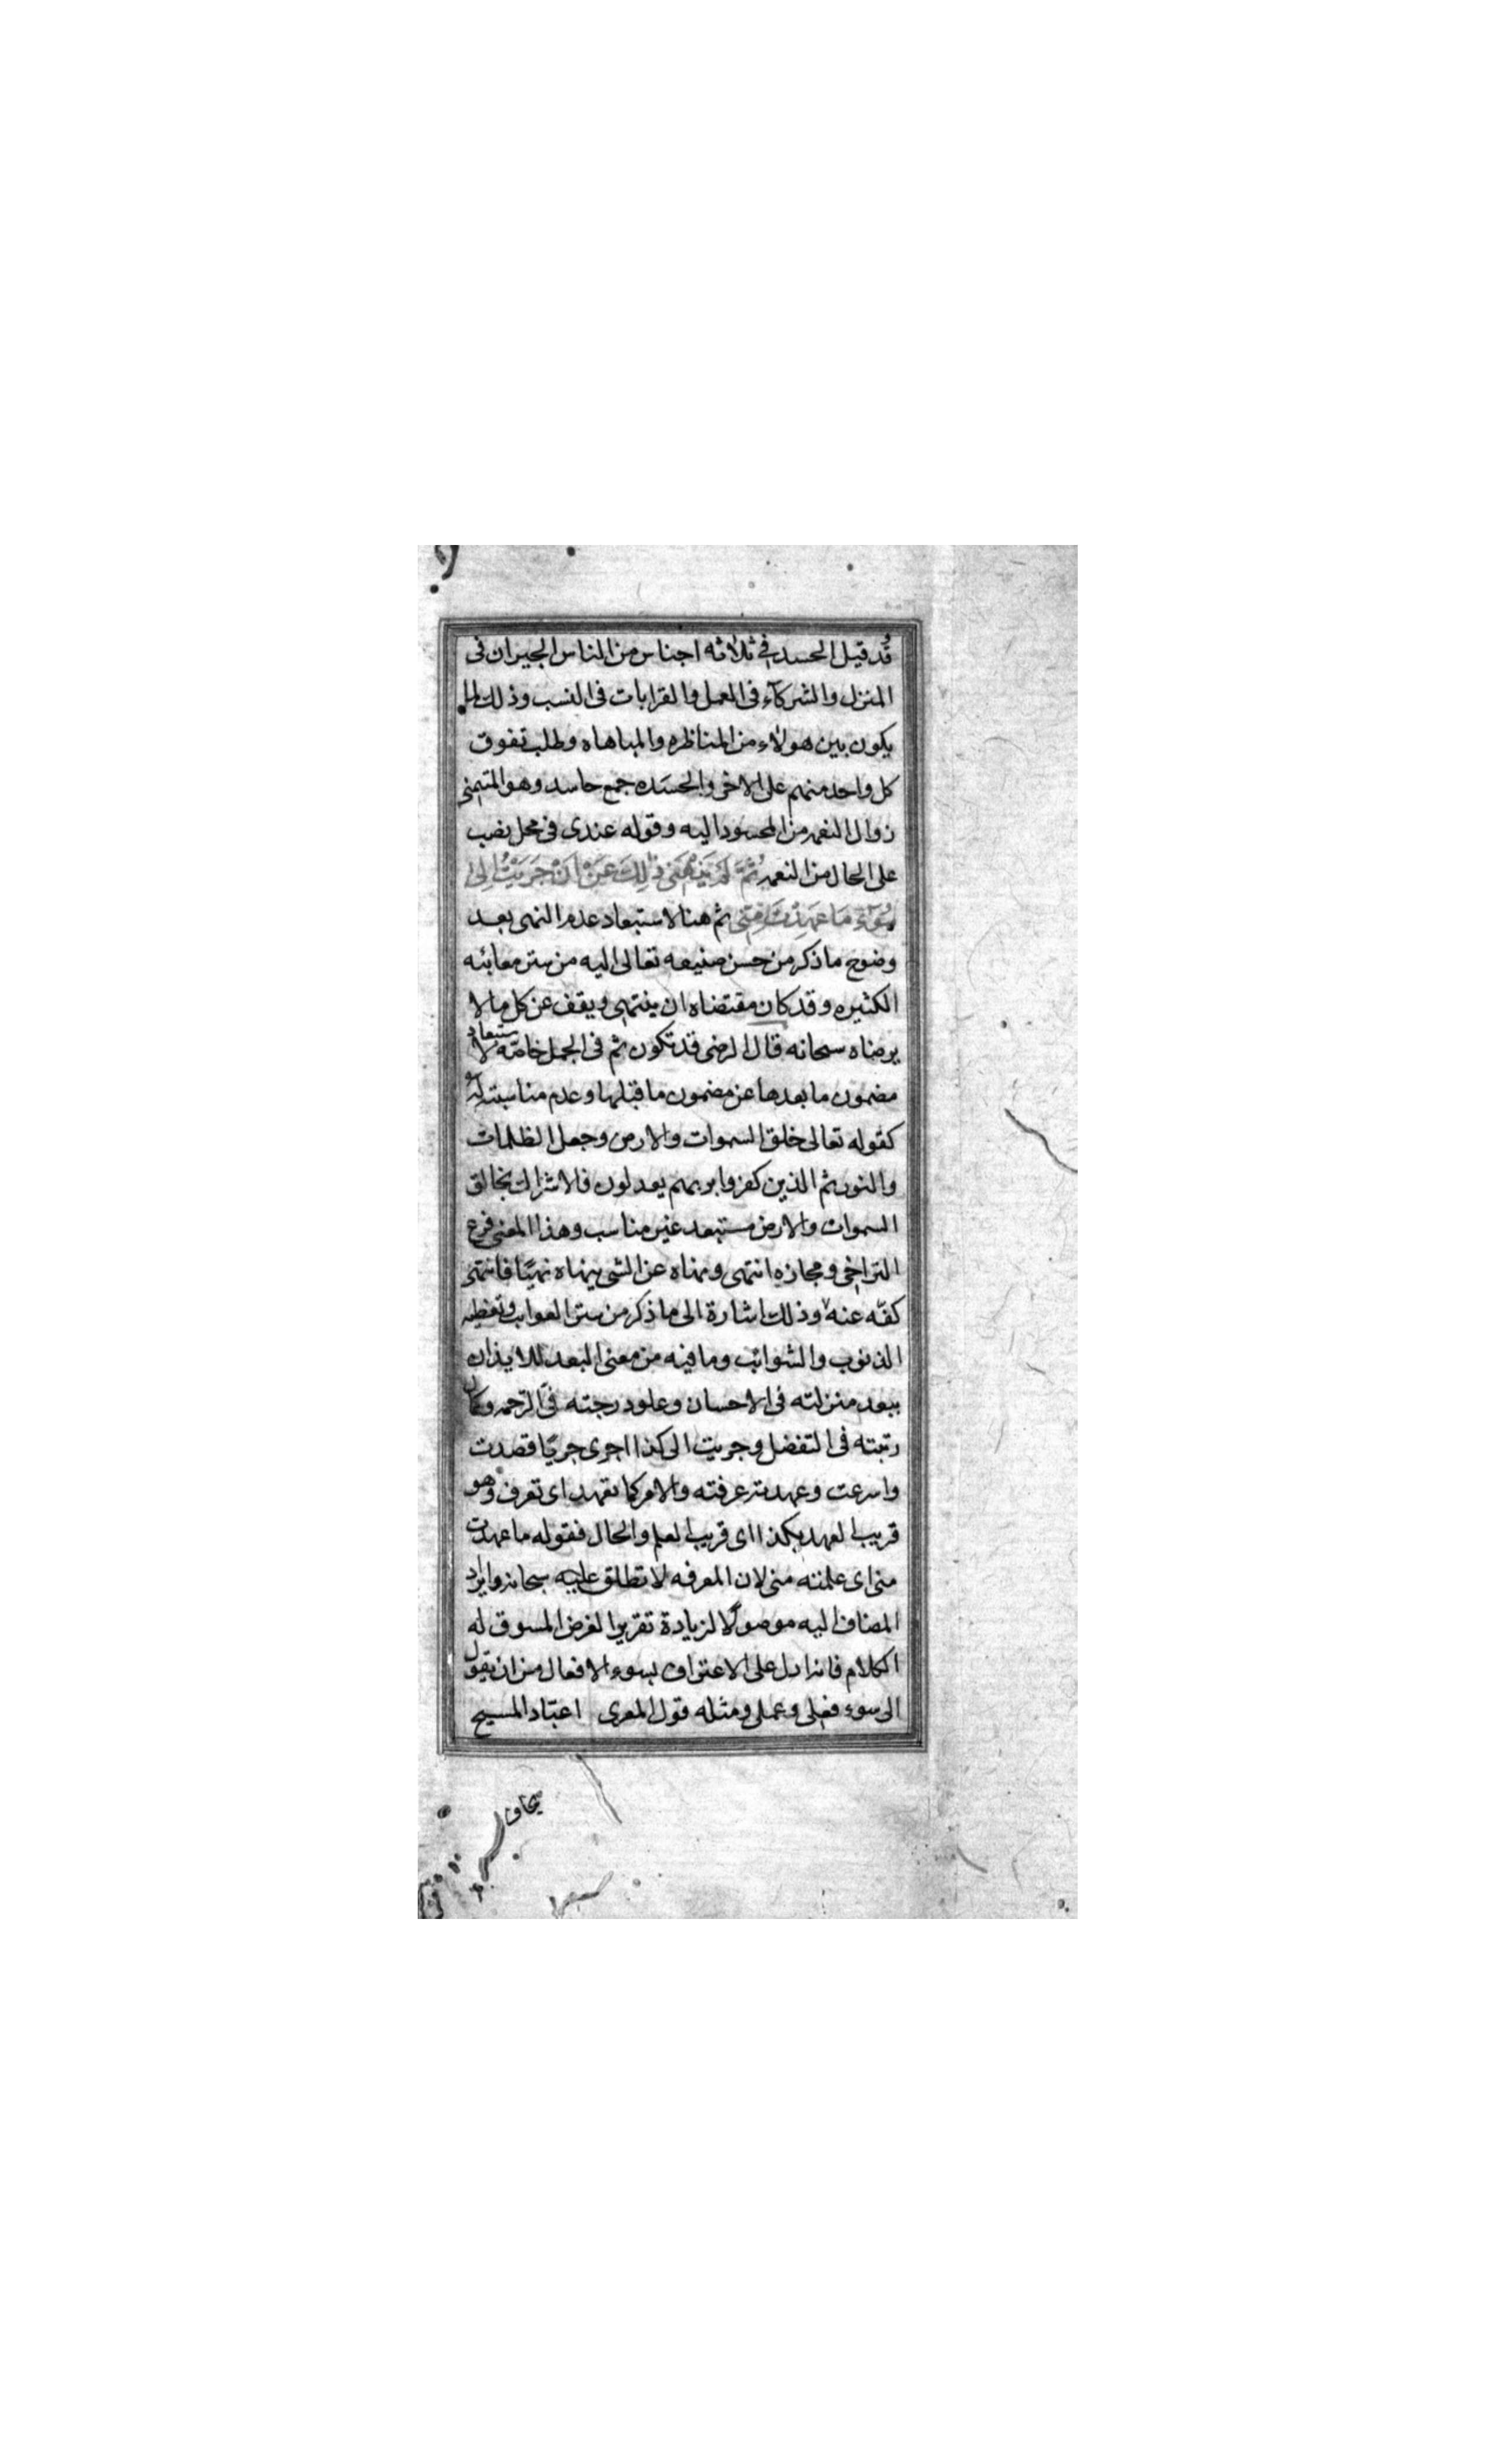 وقد قيل الحسد في ثلاثه اجناس من الناس الجيران فى
المنزل والشركآء فى العمل والقرابات فى النسب وذلك لما
يكون بين هولاء من المناظره والمباهاه وطلب تفوق
كل واحد منهم على الاخر والحسده جمع حاسد وهو المتمنى
زوال النعمه من المحسود اليه وقوله عندى فى محل نصب
على الحال من النعمه ثُمَّ لَمْ يَنْهَنى ذٰلِكَ عَنْ اَنْ جَرَيْتُ اِلى
سُوٓءِ مَا عَهِدْتَ مِنّى ثم هنا لاستبعاد عدم النهى بعد
وضوح ما ذكر من حسن صنيعه تعالى اليه من ستر معائبه
الكثيره وقد كان مقتضاه ان ينتهى ويقف عن كل ما لا
يرضاه سبحانه قال الرضى قد تكون ثم فى الجمل خاصه لاستبعاد
مضمون ما بعدها عن مضمون ما قبلها وعدم مناسبته له
كقوله تعالى خلق السموات والارض وجعل الظلمات
والنور ثم الذين كفروا بربهم يعدلون فالاشراك بخالق
السموات والارض مستبعد غير مناسب وهذا المعنى فرع
التراخى ومجازه انتهى ونهاه عن الشى ينهاه نهيًا فانتهى
كفّه عنه وذلك اشارة الى ما ذكر من ستر العوايب وتغطيه
الذنوب والشوائب وما فيه من معنى البعد للايذان
ببعد منزلته فى الاحسان وعلو درجته فى الرّحمه وكمال
رتبته فى التفضل وجريت الى كذا اجرى جريًا قصدت
واسرعت وعهدته عرفته والامر كما تعهد اى تعرف وهو
قريب العهد بكذا اى قريب العلم والحال فقوله ما عهدت
منى اى علمته منى لان المعرفه لا تطلق عليه سبحانه وايراد
المضاف اليه موصولًا لزيادة تقرير الغرض المسوق له
الكلام فانه ادل على الاعتراف بسوء الافعال من ان يقول
الى سوء فعلى وعملى ومثله قول المعرى اعبّاد المسيح
يخاف